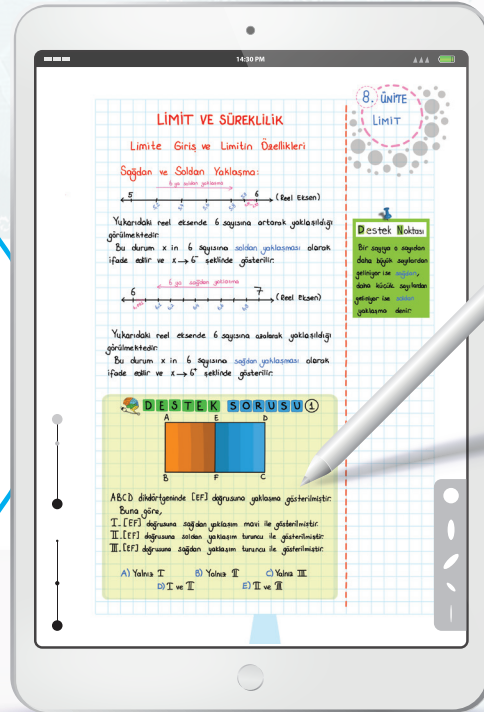 14:30 PM
8. ÜNİTE
LİMİT
LİMİT VE SÜREKLİLİK
Limite Giriş ve Limitin Özellikleri
Sağdan ve Soldan Yaklaşma:
6 ya soldan yaklaşma
5 6 (Reel Eksen)
Yukarıdaki reel eksende 6 sayısına artarak yaklaşıldığı
görülmektedir.
Bu durum x in 6 sayısına soldan yaklaşması olarak
ifade edilir ve x→6⁻ şeklinde gösterilir.
6 ya sağdan yaklaşma
6 7 (Reel Eksen)
Yukarıdaki reel eksende 6 sayısına azalarak yaklaşıldığı
görülmektedir.
Bu durum x in 6 sayısına sağdan yaklaşması olarak
ifade edilir ve x→6⁺ şeklinde gösterilir.
Destek Noktası
Bir sayıya o sayıdan
daha büyük sayılardan
geliniyor ise sağdan,
daha küçük sayılardan
geliniyor ise soldan
yaklaşma denir.
DESTEK SORUSU 1
A E D
B F C
ABCD dikdörtgeninde [EF] doğrusuna yaklaşma gösterilmiştir.
Buna göre,
I. [EF] doğrusuna sağdan yaklaşım mavi ile gösterilmiştir.
II. [EF] doğrusuna soldan yaklaşım turuncu ile gösterilmiştir.
III. [EF] doğrusuna sağdan yaklaşım turuncu ile gösterilmiştir.
A) Yalnız I B) Yalnız II C) Yalnız III
D) I ve II E) II ve III